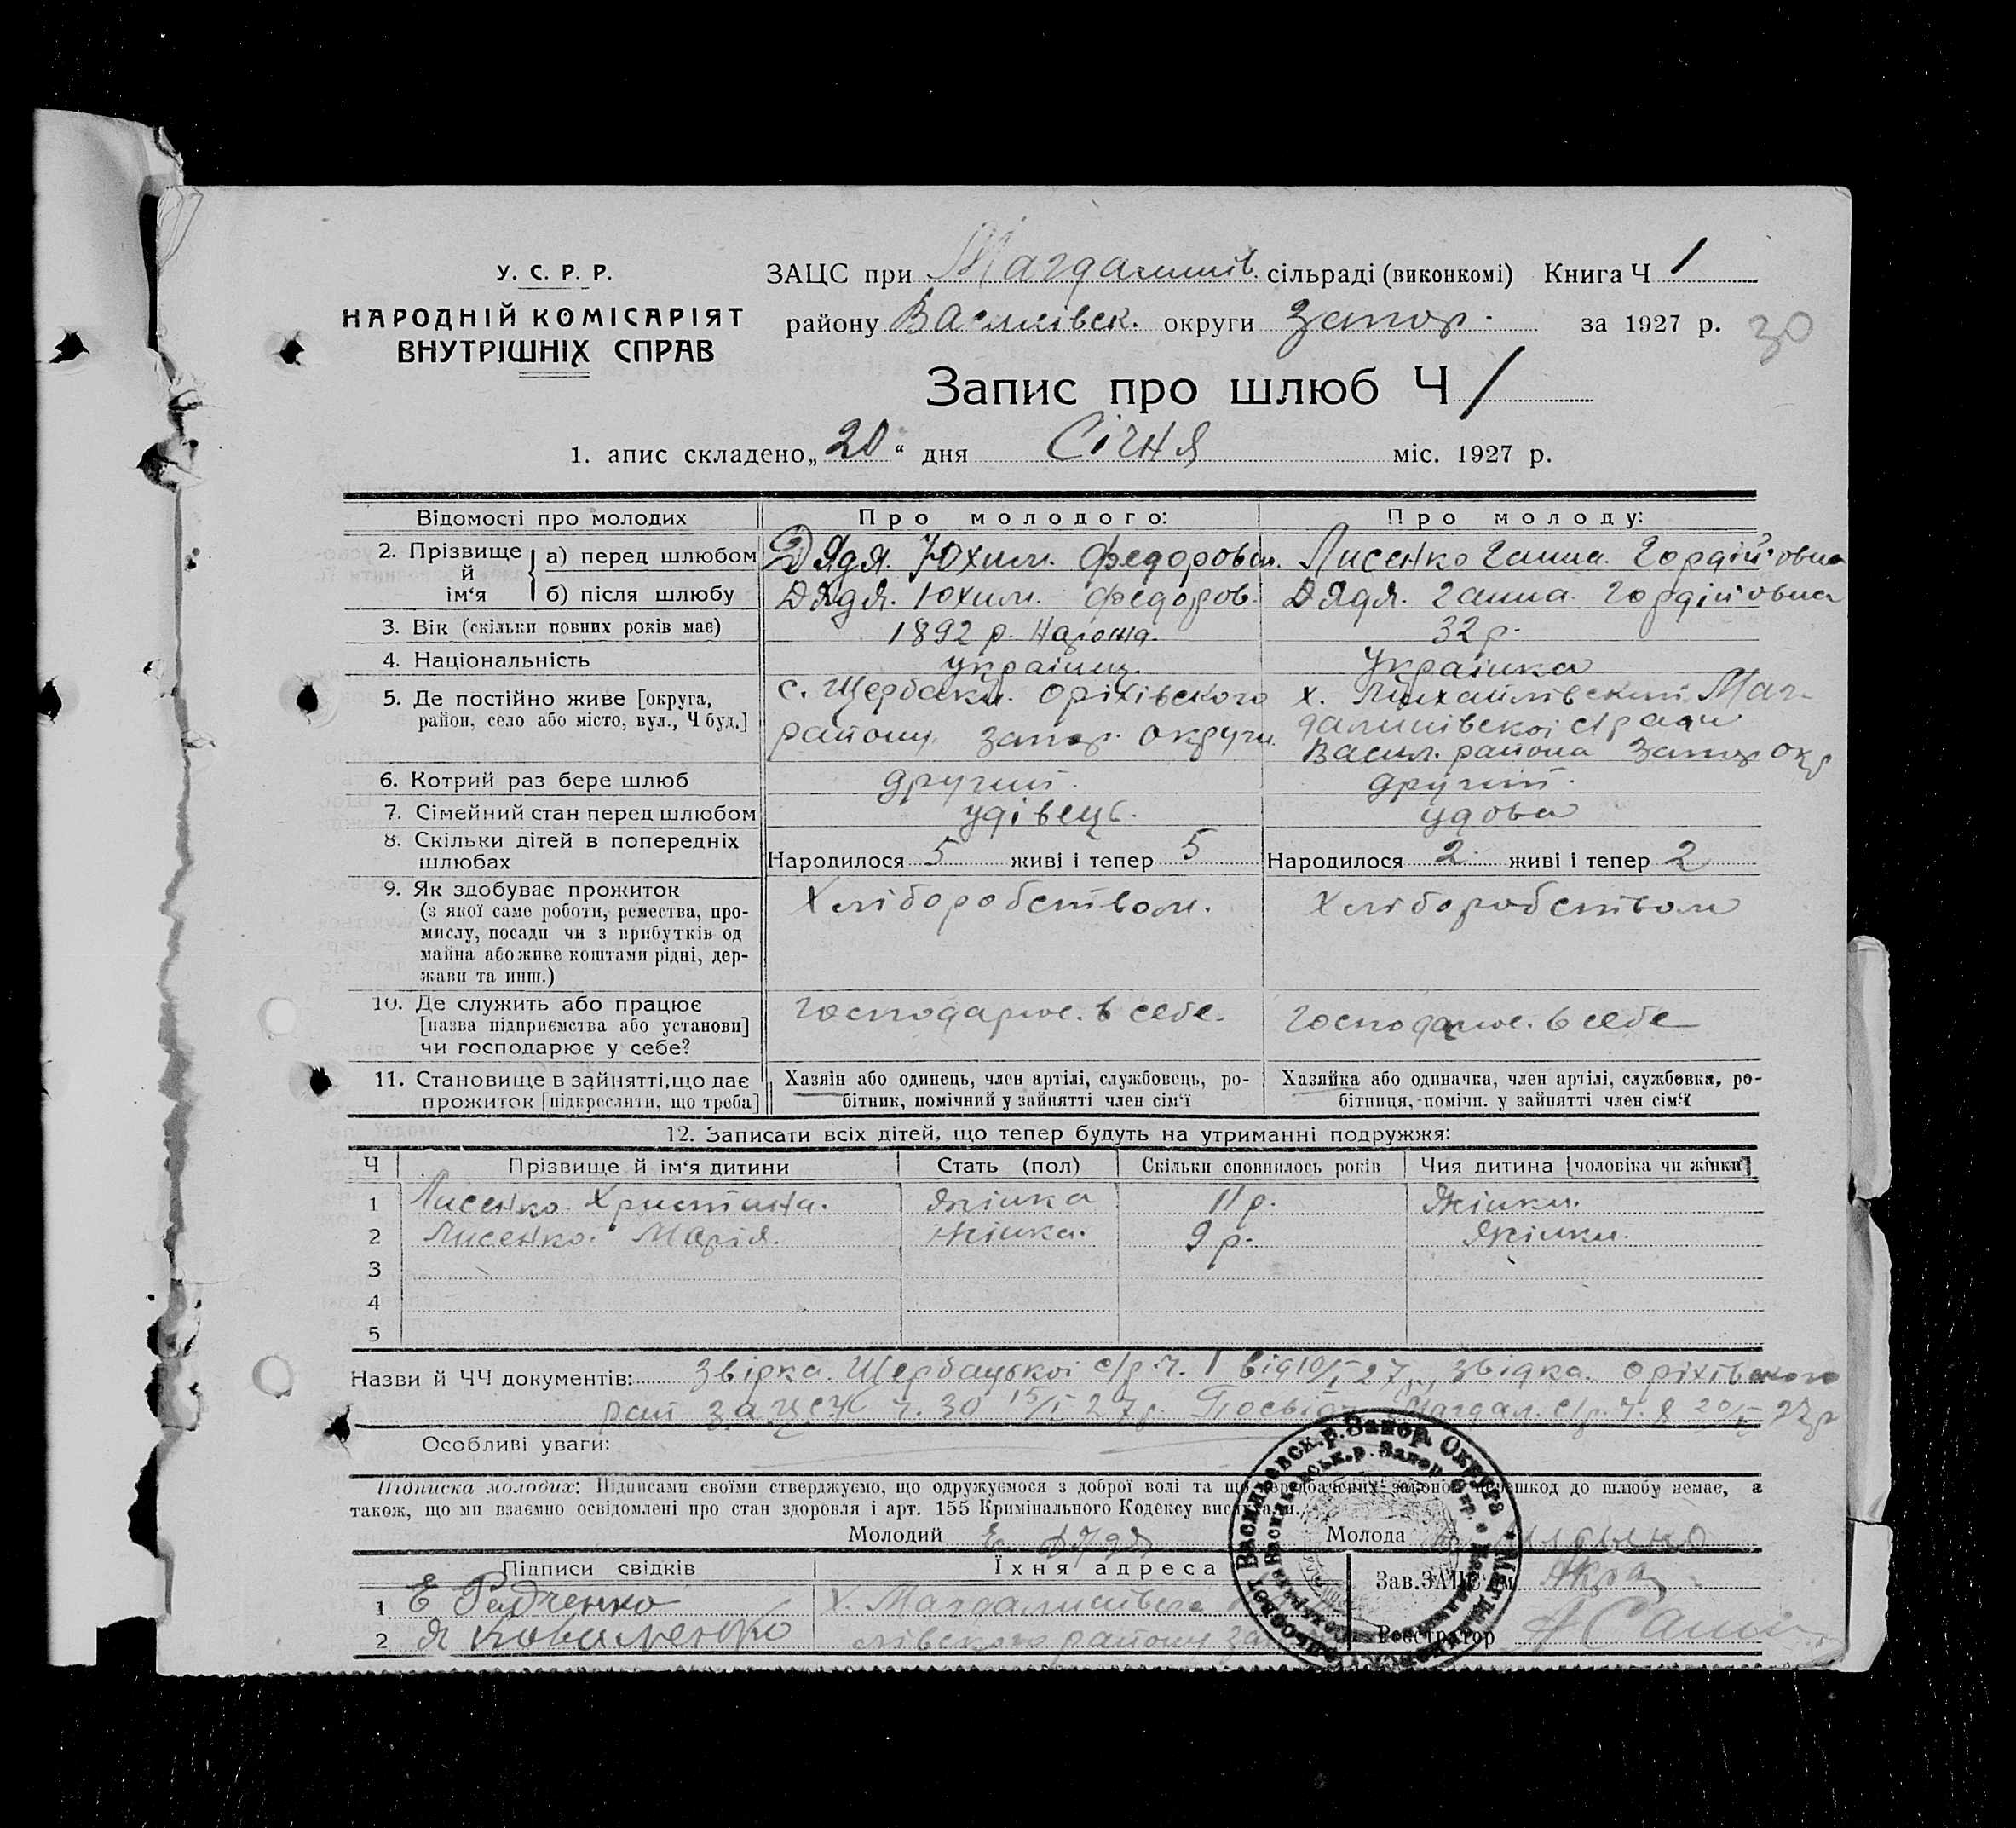 У. С. Р. Р.
НАРОДНІЙ КОМІСАРІЯТ
ВНУТРІШНІХ СПРАВ
ЗАЦС при Магдалинів. сільраді (виконкомі) Книга Ч 1
району Василівск. округи Запор. за 1927 р. 30
Запис про шлюб Ч 1
1. апис складено „20“ дня Січня міс. 1927 р.
Відомості про молодих Про молодого: Про молоду:
2. Прізвище й ім‘я а) перед шлюбом Дядя. Юхим. Федорови. Лисенко Ганна. Гордій‘овна
б) після шлюбу Дядя. Юхим. Федоров. Дядя. Ганна. Гордій‘овна
3. Вік (скільки повних років має) 1892 р. Народ. 32 р.
4. Національність українц. Українка
5. Де постійно живе [округа, район, село або місто, вул., Ч буд.]
с. Щербаки. Оріхівского
району. Запор. Округи.
х. Михайлівский Маг-
далинівскоі с/ради
Васил. района Запор Окр
6. Котрий раз бере шлюб другий. другий.
7. Сімейний стан перед шлюбом удівець. удова
8. Скільки дітей в попередніх шлюбах Народилося 5 живі і тепер 5 Народилося 2 живі і тепер 2
9. Як здобуває прожиток Хліборобством. Хліборобством
(з якої саме роботи, ремества, про-
мислу, посади чи з прибутків од
майна або живе коштами рідні, дер-
жави та инш.)
10. Де служить або працює
[назва підприємства або установи]
чи господарює у себе?
господарює. в себе. господарює. в себе
11. Становище в зайнятті, що дає
прожиток [підкреслити, що треба]
Хазяїн або одинець, член артілі, службовець, ро-
бітник, помічний у зайнятті член сім‘ї
Хазяйка або одиначка, член артілі, службовка, ро-
бітниця, помічн. у зайнятті член сім‘ї
12. Записати всіх дітей, що тепер будуть на утриманні подружжя:
Ч Прізвище й ім‘я дитини Стать (пол) Скільки сповнилось років Чия дитина [чоловіка чи жінки]
1 Лисенко. Христина. жінка 11 р. Жінки.
2 Лисенко. Марія. жінка. 9 р. Жінки.
3
4
5
Назви й ЧЧ документів: Звірка. Щербацькоі с/р ч. 1 від 10/I 27 р., звідка. Оріхівского
рай ЗАЦСУ ч. 30 15/I 27 р. Посвідч. Магдал. с/р. ч. 8 20/I 27 р
Особливі уваги:
Підписка молодих: Підписами своїми стверджуємо, що одружуємося з доброї волі та що передбачених законом перешкод до шлюбу немає, а
також, що ми взаємно освідомлені про стан здоровля і арт. 155 Кримінального Кодексу вислухали.
Молодий Е. Дядя Молода
Підписи свідків Їхня адреса Зав. ЗАЦС‘ом
1 Е Радченко х. Магдалинівск
2 Я Коваленко лівского району Реєстратор
Васильевск. р. Запор. Округа